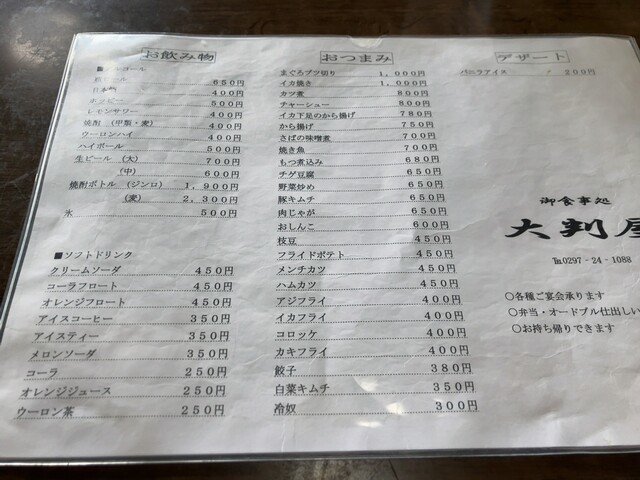 お飲み物
■アルコール
瓶ビール 650円
日本酒 400円
ホッピー 500円
レモンサワー 400円
焼酎 (甲類・麦) 400円
ウーロンハイ 400円
ハイボール 500円
生ビール (大) 700円
(中) 600円
焼酎ボトル (ジンロ) 1,900円
(麦) 2,300円
氷 500円
■ソフトドリンク
クリームソーダ 450円
コーラフロート 450円
オレンジフロート 450円
アイスコーヒー 350円
アイスティー 350円
メロンソーダ 350円
コーラ 250円
オレンジジュース 250円
ウーロン茶 250円
おつまみ
まぐろブツ切り 1,000円
イカ焼き 1,000円
カツ煮 800円
チャーシュー 800円
イカ下足のから揚げ 780円
から揚げ 750円
さばの味噌煮 700円
焼き魚 700円
もつ煮込み 680円
チゲ豆腐 650円
野菜炒め 650円
豚キムチ 650円
肉じゃが 650円
おしんこ 600円
枝豆 450円
フライドポテト 450円
メンチカツ 450円
ハムカツ 450円
アジフライ 400円
イカフライ 400円
コロッケ 400円
カキフライ 400円
餃子 380円
白菜キムチ 350円
冷奴 300円
デザート
バニラアイス 200円
御食事処
大判屋
℡0297-24-1088
○各種ご宴会承ります
○弁当・オードブル仕出しい
○お持ち帰りできます